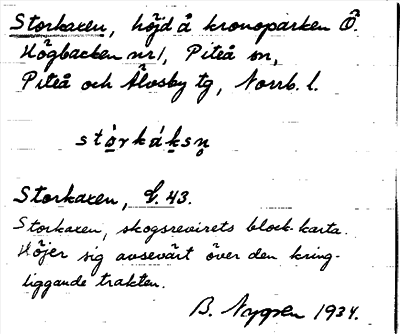 Storkaxen, höjd å kronoparken Ö.
Högbacken nr 1, Piteå sn,
Piteå och Älvsby tg, Norrb. l.
stòrkáksn̥
Storkaxen, G. 43.
Storkaxen, skogsrevirets block-karta.
Höjer sig avsevärt över den kring-
liggande trakten.
B. Nygren 1934.